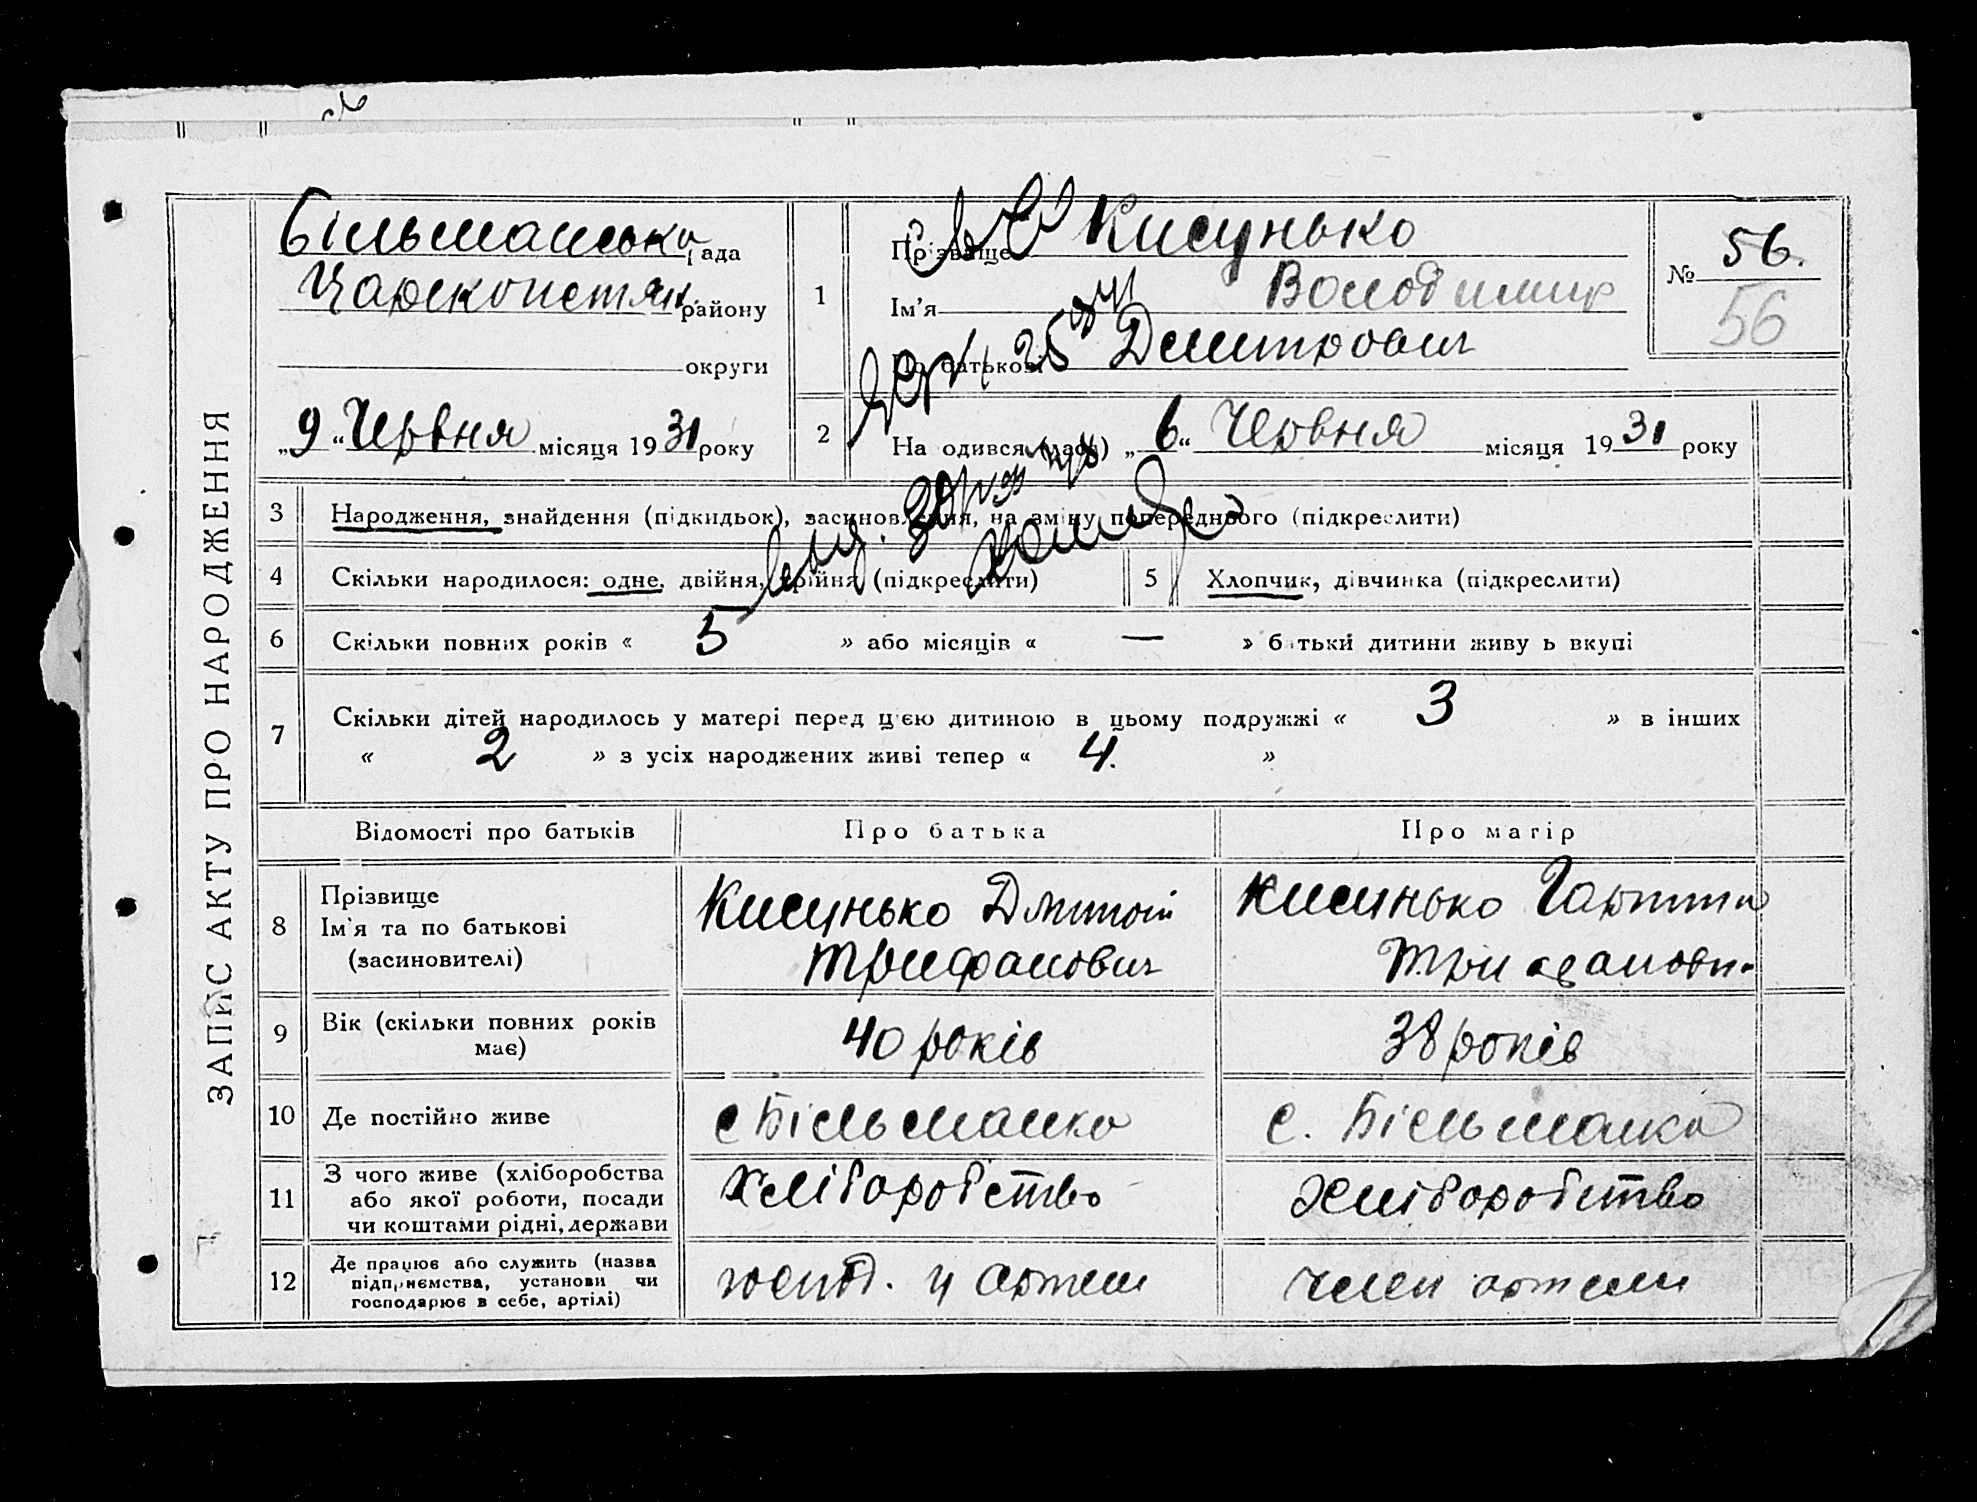 ЗАПИС АКТУ ПРО НАРОДЖЕННЯ
Більманська рада
району
округи
„9“ Червня місяця 1931 року
1
Прізвище Кисунько
Ім'я Володимир
По батькові Дмитрович
№ 56.
56
2
На одився (лась) „6“ Червня місяця 1931 року
3 Народження, знайдення (підкидьок), засиновлення, на зміну попереднього (підкреслити)
4 Скільки народилося: одне, двійня, трійня (підкреслити)
5 Хлопчик, дівчинка (підкреслити)
6 Скільки повних років « 5 » або місяців « — » батьки дитини живу ь вкупі
7 Скільки дітей народилось у матері перед цією дитиною в цьому подружжі « 3 » в інших
« 2 » з усіх народжених живі тепер « 4. »
Відомості про батьків Про батька Про матір
8 Прізвище
Ім'я та по батькові
(засиновителі)
Кисунько Дмитрій
Трифанович
Кисунько
9 Вік (скільки повних років
має)
40 років
38 років
10 Де постійно живе
с Більманка
с. Більманка
11 З чого живе (хліборобства
або якої роботи, посади
чи коштами рідні, держави
Хліборобство
Хліборобство
12 Де працює або служить (назва
підприємства, установи чи
господарює в себе, артілі)
господ. у артели
член артели